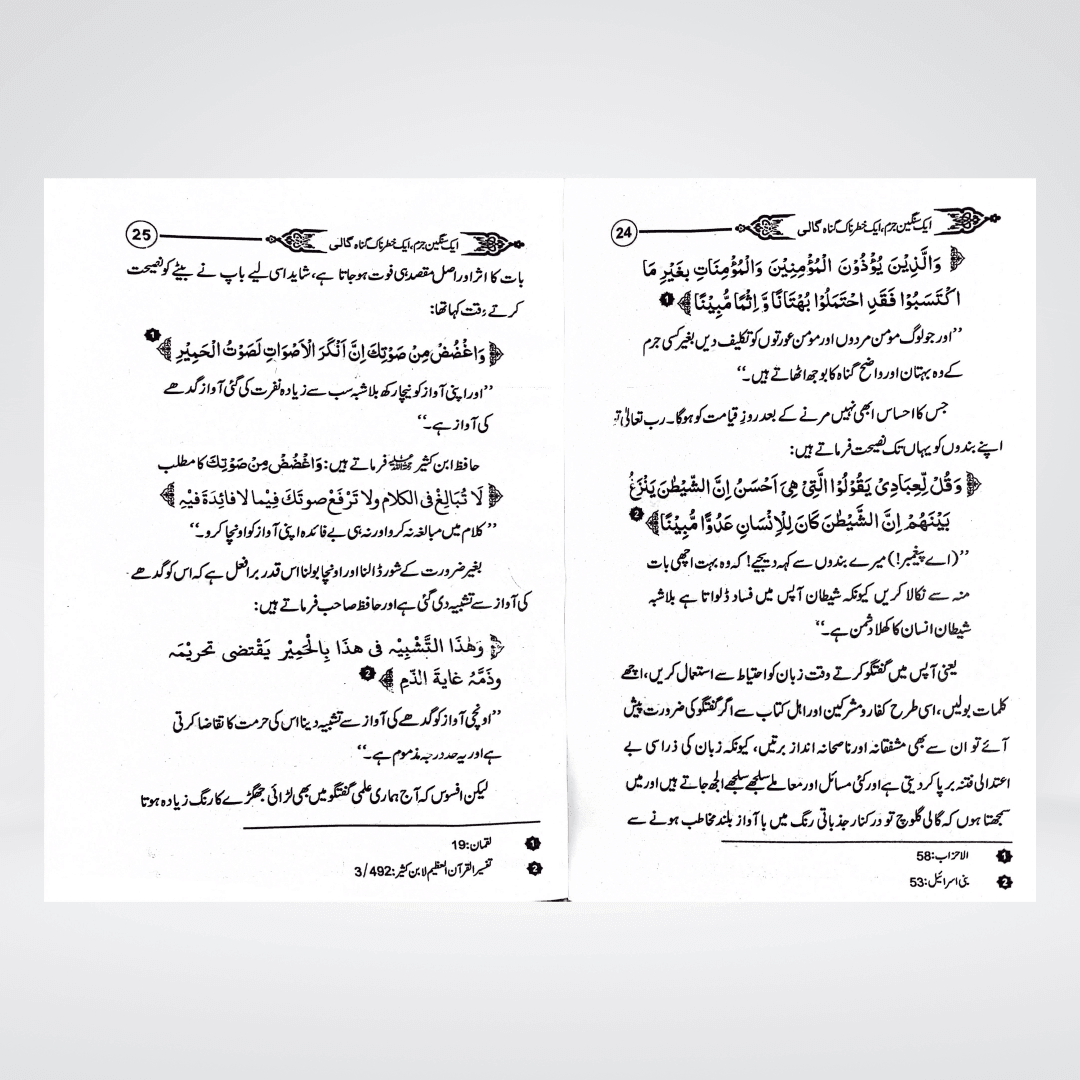 ایک سنگین جرم، ایک خطرناک گناہ گالی 24
﴿ وَالَّذِیْنَ یُؤْذُوْنَ الْمُؤْمِنِیْنَ وَالْمُؤْمِنَاتِ بِغَیْرِ مَا
اکْتَسَبُوْا فَقَدِ احْتَمَلُوْا بُھْتَانًا وَّ اِثْمًا مُّبِیْنًا﴾ 1
’’اور جو لوگ مؤمن مردوں اور مومن عورتوں کو تکلیف دیں بغیر کسی جرم
کے وہ بہتان اور واضح گناہ کا بوجھ اٹھاتے ہیں۔‘‘
جس کا احساس ابھی نہیں مرنے کے بعد روزِ قیامت کو ہوگا۔ رب تعالیٰ تو
اپنے بندوں کو یہاں تک نصیحت فرماتے ہیں:
﴿ وَقُلْ لِّعِبَادِیْ یَقُوْلُوْا الَّتِیْ ھِیَ اَحْسَنُ اِنَّ الشَّیْطٰنَ یَنْزَغُ
بَیْنَھُمْ اِنَّ الشَّیْطٰنَ کَانَ لِلْاِنْسَانِ عَدُوًّا مُّبِیْنًا﴾ 2
’’(اے پیغمبر!) میرے بندوں سے کہہ دیجیے! کہ وہ بہت اچھی بات
منہ سے نکالا کریں کیونکہ شیطان آپس میں فساد ڈلواتا ہے بلاشبہ
شیطان انسان کا کھلا دشمن ہے۔‘‘
یعنی آپس میں گفتگو کرتے وقت زبان کو احتیاط سے استعمال کریں، اچھے
کلمات بولیں، اسی طرح کفار و مشرکین اور اہل کتاب سے اگر گفتگو کی ضرورت پیش
آئے تو ان سے بھی مشفقانہ اور ناصحانہ انداز برتیں، کیونکہ زبان کی ذرا سی بے
اعتدالی فتنہ برپا کر دیتی ہے اور کئی مسائل اور معاملے سلجھے سلجھے الجھ جاتے ہیں اور میں
سمجھتا ہوں کہ گالی گلوچ تو درکنار جذباتی رنگ میں با آواز بلند مخاطب ہونے سے
1 الاحزاب:58
2 بنی اسرائیل:53
ایک سنگین جرم، ایک خطرناک گناہ گالی 25
بات کا اثر اور اصل مقصد ہی فوت ہو جاتا ہے، شاید اسی لیے باپ نے بیٹے کو نصیحت
کرتے وقت کہا تھا:
﴿ وَاغْضُضْ مِنْ صَوْتِكَ اِنَّ اَنْکَرَ الْاَصْوَاتِ لَصَوْتُ الْحَمِیْرِ ﴾ 1
’’اور اپنی آواز کو نیچا رکھ بلاشبہ سب سے زیادہ نفرت کی گئی آواز گدھے
کی آواز ہے۔‘‘
حافظ ابن کثیر رحمہ اللہ فرماتے ہیں: وَاغْضُضْ مِنْ صَوْتِكَ کا مطلب
﴿ لَا تُبَالِغْ فی الکلام ولا تَرْفَعْ صوتك فِیما لا فائِدۃَ فیْہِ ﴾
’’کلام میں مبالغہ نہ کرو اور نہ ہی بے فائدہ اپنی آواز کو اونچا کرو۔‘‘
بغیر ضرورت کے شور ڈالنا اور اونچا بولنا اس قدر برا فعل ہے کہ اس کو گدھے
کی آواز سے تشبیہ دی گئی ہے اور حافظ صاحب فرماتے ہیں:
﴿ وَھٰذَا التَّشْبِیْہ فی ھذَا بِالْحَمِیْرِ یَقْتضی تحریْمَہ
وذَمَّہُ غایةَ الذّمِ ﴾ 2
’’اونچی آواز کو گدھے کی آواز سے تشبیہ دینا اس کی حرمت کا تقاضا کرتی
ہے اور یہ حد درجہ مذموم ہے۔‘‘
لیکن افسوس کہ آج ہماری علمی گفتگو میں بھی لڑائی جھگڑے کا رنگ زیادہ ہوتا
1 لقمان:19
2 تفسیر القرآن العظیم لابن کثیر:3/492